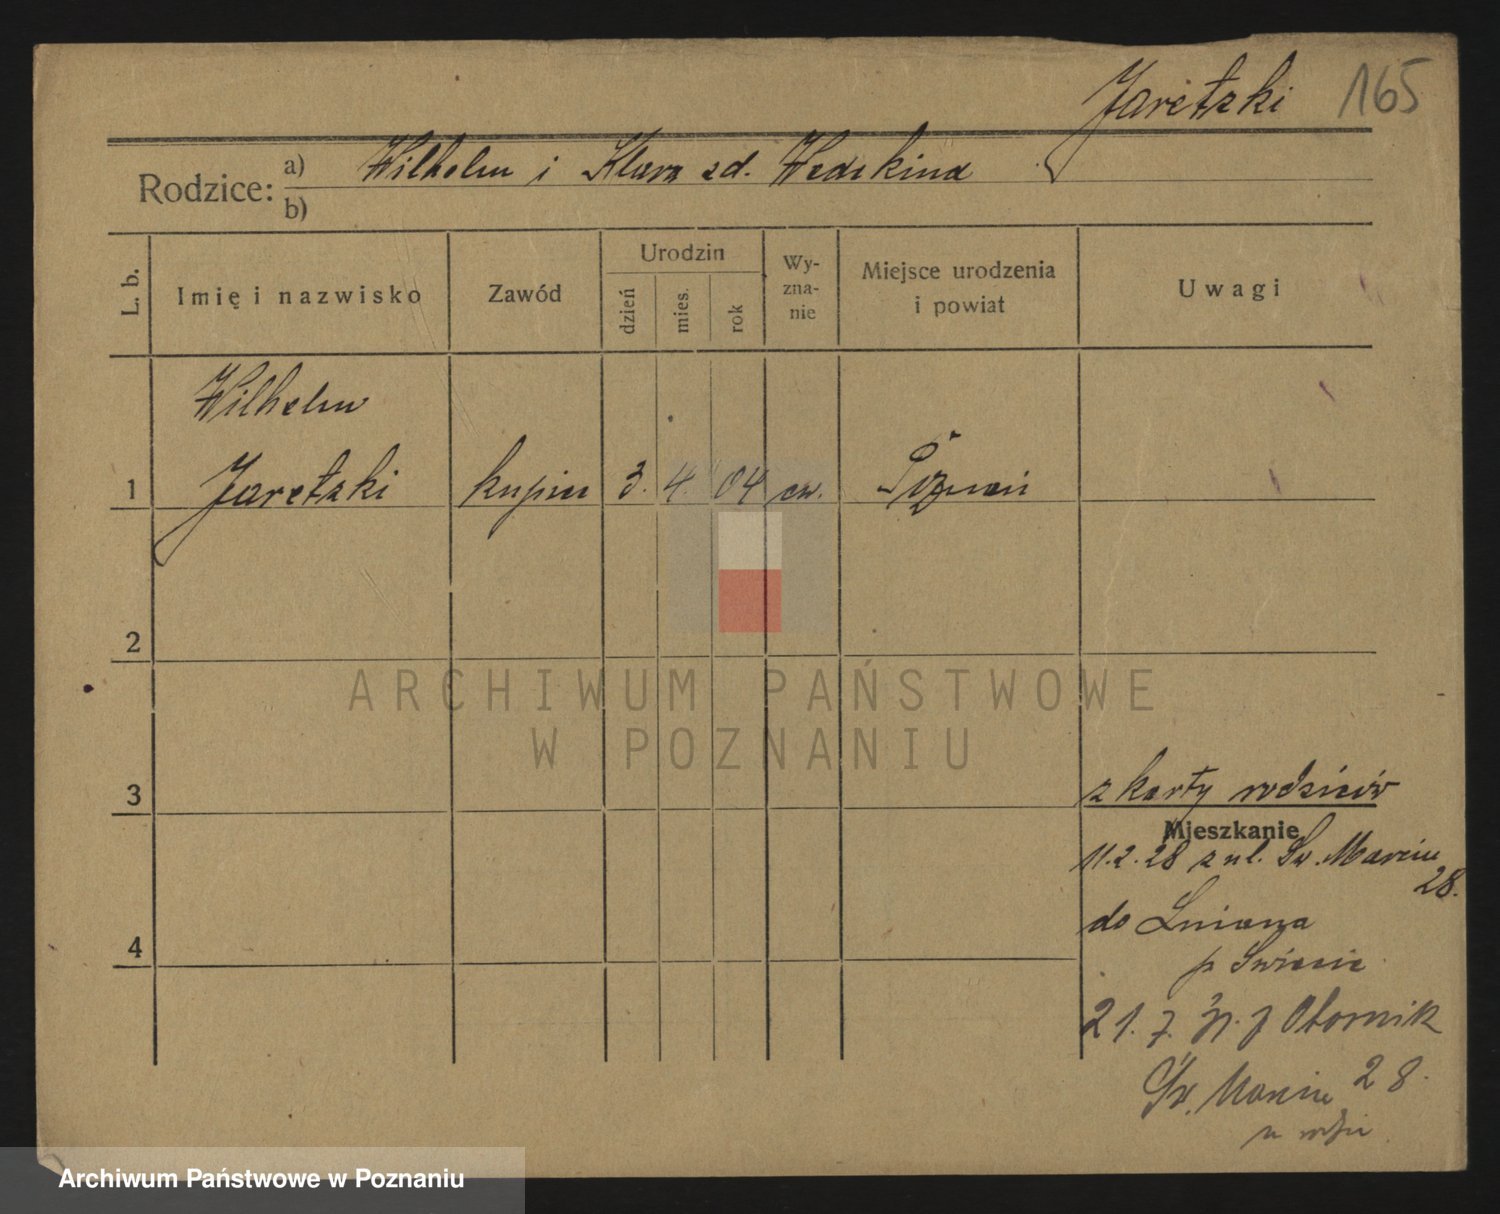 Jaretzki 165
Rodzice: a) Wilhelm i Klara zd. Wedekind
b)
L. b. Imię i nazwisko Zawód Urodzin dzień mies. rok Wyznanie Miejsce urodzenia i powiat Uwagi
Wilhelm
1 Jaretzki kupiec 3. 4. 04 ew. Poznań
2
ARCHIWUM PAŃSTWOWE
W POZNANIU
3 z karty rodziców
Mieszkanie
11.2.28 z ul. Św. Marcin
28.
do Lniana
4
p Świecie
21. 7. z Obornik
Św. Marcin 28.
Archiwum Państwowe w Poznaniu